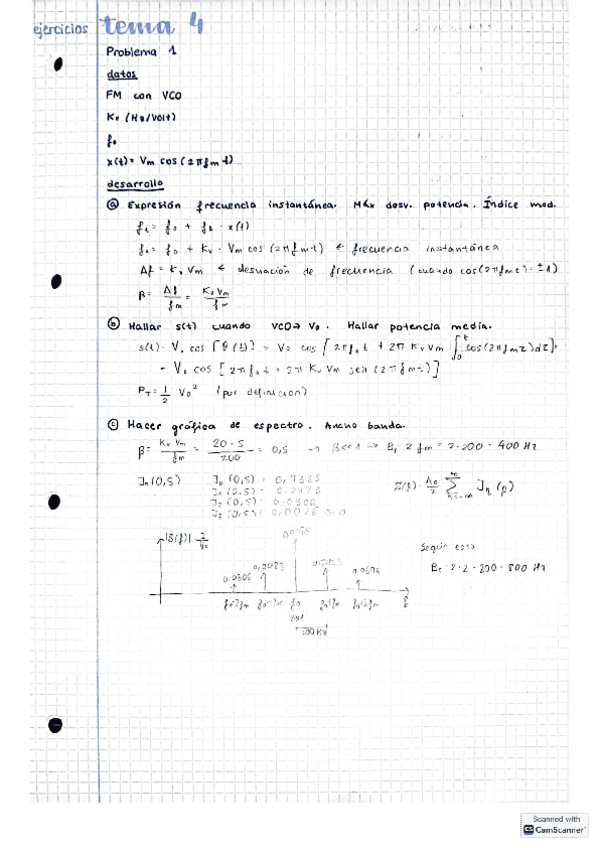 ejercicios tema 4
Problema 1
datos
FM con VCO
Kv (Hz/Volt)
f₀
x(t) = Vm cos (2πfm t)
desarrollo
ⓐ Expresión frecuencia instantánea. Máx desv. potencia. Índice mod.
fi = f₀ + · x(t)
fi = f₀ + Kv · Vm cos (2πfmt) ← frecuencia instantánea
Δf = Kv Vm ← desviación de frecuencia (cuando cos(2πfmt) = ±1)
β = Δf/fm = Kv Vm/fm
ⓑ Hallar s(t) cuando VCO → V₀. Hallar potencia media.
s(t) = V₀ cos [θ(t)] = V₀ cos [2πf₀t + 2π Kv Vm ∫₀ᵗ cos(2πfmτ)dτ] =
= V₀ cos [2πf₀t + 2π Kv Vm sen (2πfmt)]
PT = 1/2 V₀² (por definición)
ⓒ Hacer gráfica de espectro. Ancho banda.
β = Kv Vm/fm = 20·5/200 = 0,5 → β<<1 → BT 2 fm = 2·200 = 400 Hz
Jn(0,5) J₀(0,5) =
|S(f)| 2/V₀
Según esto
BT = 2·2·200 = 800 Hz
0,0306 0,2423
f₀-2fm f₀-fm f₀ f₀+fm f₀+2fm f
200 Hz
Scanned with
CamScanner